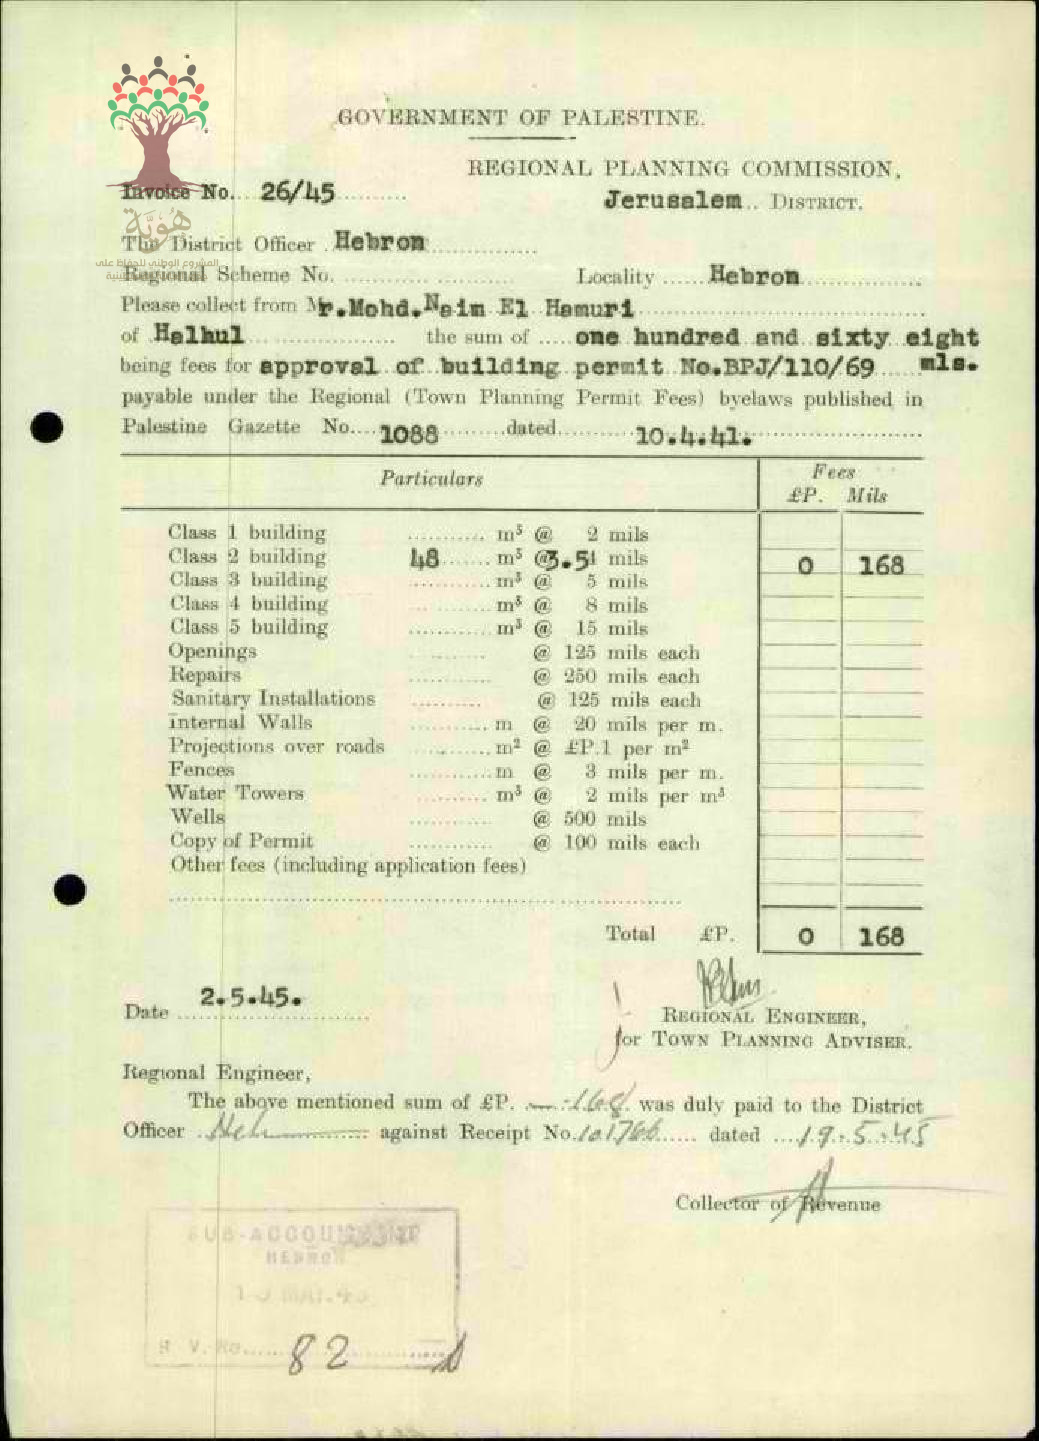 GOVERNMENT OF PALESTINE.
REGIONAL PLANNING COMMISSION,
Invoice No. 26/45
Jerusalem.. DISTRICT.
هُوِيَّة
The District Officer . Hebron
المشروع الوطني للحفاظ على
Regional Scheme No. Locality ...... Hebron
Please collect from Mr.Mohd.Naim El Hamuri
of Halhul the sum of ..... one hundred and sixty eight
being fees for approval of building permit No.BPJ/110/69 mls.
payable under the Regional (Town Planning Permit Fees) byelaws published in
Palestine Gazette No....1088 dated 10.4.41.
Particulars Fees
£P. Mils
Class 1 building m³ @ 2 mils
Class 2 building 48 m³ @3.5 mils 0 168
Class 3 building m³ @ 5 mils
Class 4 building m³ @ 8 mils
Class 5 building m³ @ 15 mils
Openings @ 125 mils each
Repairs @ 250 mils each
Sanitary Installations @ 125 mils each
Internal Walls m @ 20 mils per m.
Projections over roads m² @ £P.1 per m²
Fences m @ 3 mils per m.
Water Towers m³ @ 2 mils per m³
Wells @ 500 mils
Copy of Permit @ 100 mils each
Other fees (including application fees)
Total £P. 0 168
2.5.45.
Date
REGIONAL ENGINEER,
for TOWN PLANNING ADVISER.
Regional Engineer,
The above mentioned sum of £P. —.168 was duly paid to the District
Officer Heb against Receipt No.101766 dated 19.5.45
Collector of Revenue
SUB-ACCOUNTANT
HEBRON
82